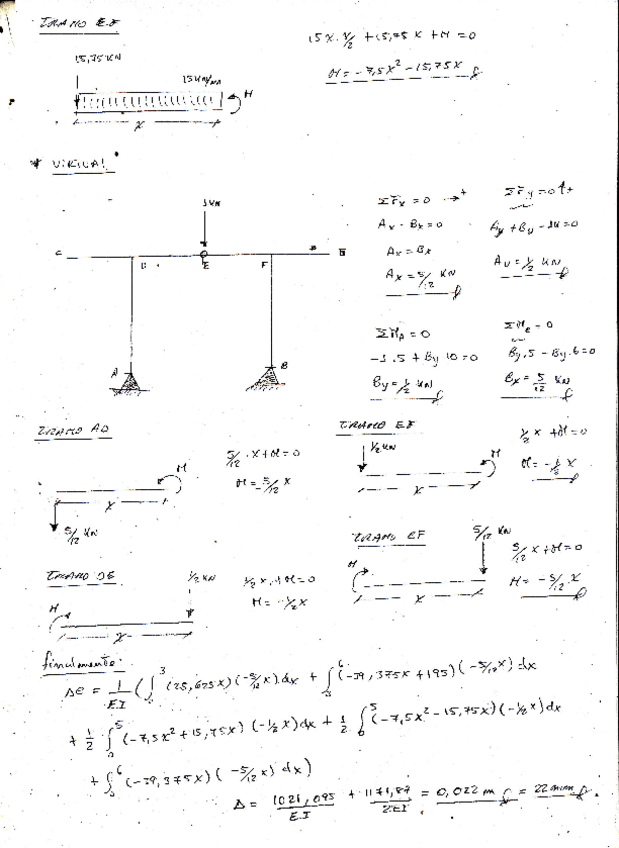 TRAMO E.F
15X.X/2 + 15,75X + M = 0
M = -7,5X² - 15,75X
15,75 KN
15 KN/m
M
X
* VIRTUAL
1 KN
C
D
E
F
G
A
B
ΣFx = 0 → +
Ax - Bx = 0
Ax = Bx
Ax = 5/12 KN
ΣFy = 0 ↑+
Ay + By - 1K = 0
Ay = 1/2 KN
ΣMA = 0
-1.5 + By 10 = 0
By = 1/2 KN
ΣME = 0
By.5 - Bx.6 = 0
Bx = 5/12 KN
TRAMO AD
M
X
5/12 KN
5/12 . X + M = 0
M = -5/12 X
TRAMO EF
1/2 KN
M
X
1/2 X + M = 0
M = -1/2 X
TRAMO DE
M
1/2 KN
X
1/2 X + M = 0
M = -1/2 X
5/12 KN
M
X
5/12 X + M = 0
M = -5/12 X
finalmente:
Δe = 1/E.I (∫
(-5/12 X) dx + ∫
(-39,375X + 195) (-5/12 X) dx
+ 1/2 ∫₀⁵ (-7,5X² + 15,75X) (-1/2 X) dx + 1/2 ∫₀⁵ (-7,5X² - 15,75X) (-1/2 X) dx
+ ∫₀⁶ (-39,375X) (-5/12 X) dx)
Δ = 1021,095/E.I + 1171,87/2EI = 0,022 m = 22 mm.